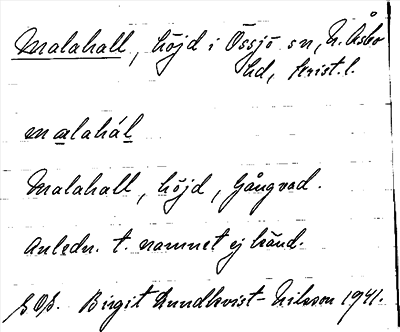 Malahall, höjd i Össjö sn, N. Åsbo
hd, Krist. l.
malahál
Malahall, höjd, Gångvad.
Anledn. t. namnet ej känd.
Birgit Lundkvist-Nilsson 1941.